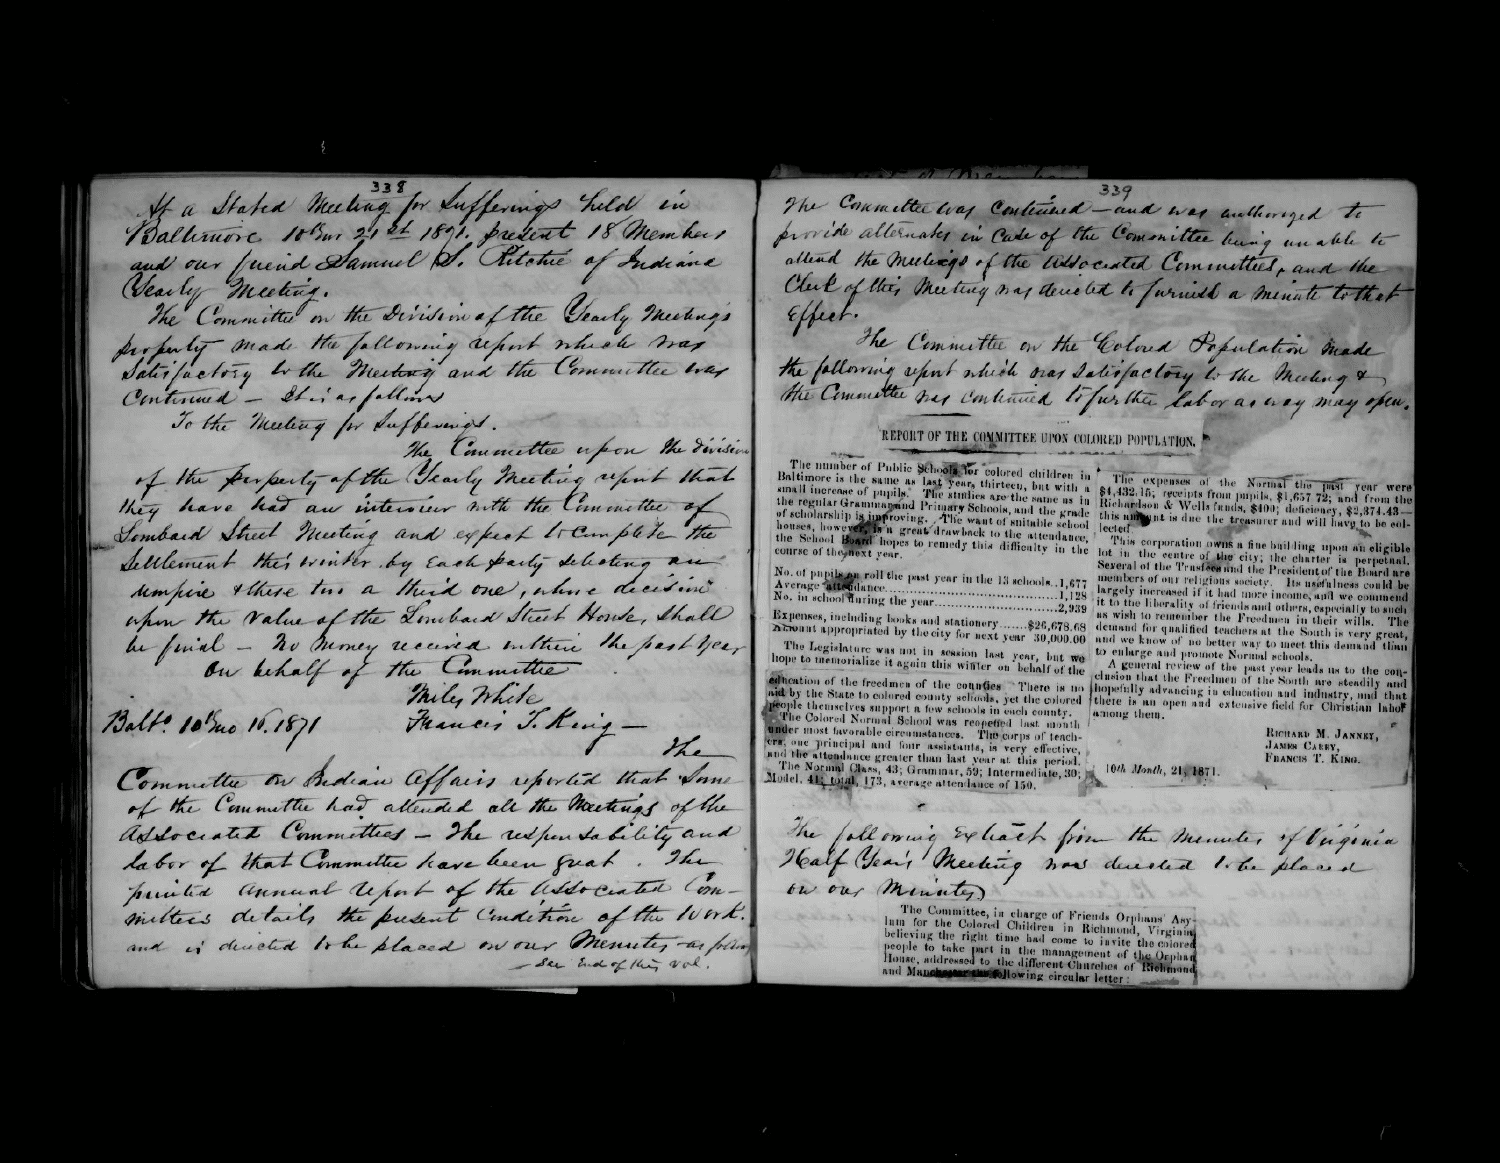 338
At a Stated Meeting for Sufferings held in
Baltimore 10th mo 21st 1871. present 18 Members
and our friend Samuel S. Ritchie of Indiana
Yearly Meeting.
The Committee on the Division of the Yearly Meetings
property made the following report which was
Satisfactory to the Meeting and the Committee was
Continued – It is as follows
To the Meeting for Sufferings.
The Committee upon the division
of the property of the Yearly Meeting report that
they have had an interview with the Committee of
Lombard Street Meeting and expect to complete the
Settlement this winter by each party selecting an
umpire & these two a third one, whose decision
upon the value of the Lombard Street House, shall
be final – No money received within the past year
On behalf of the Committee
Miles White
Balto. 10th mo 16. 1871 Francis T. King –
The
Committee on Indian Affairs reported that Some
of the Committee had attended all the Meetings of the
Associated Committees – The responsability and
labor of that Committee have been great. The
printed annual report of the Associated Com-
mittees details the present Condition of the Work.
and is directed to be placed on our Minutes – as follows
– See End of this vol.
339
The Committee was continued – and was authorized to
provide alternates in Case of the Committee being unable to
attend the Meetings of the Associated Committees, and the
Clerk of this Meeting was directed to furnish a minute to that
Effect.
The Committee on the Colored Population made
the following report which was satisfactory to the Meeting &
the Committee was continued to further labor as way may open.
REPORT OF THE COMMITTEE UPON COLORED POPULATION.
The number of Public Schools for colored children in
Baltimore is the same as last year, thirteen, but with a
small increase of pupils. The studies are the same as in
the regular Grammar and Primary Schools, and the grade
of scholarship is improving. The want of suitable school
houses, however, is a great drawback to the attendance,
the School Board hopes to remedy this difficulty in the
course of the next year.
No. of pupils on roll the past year in the 13 schools..1,677
Average attendance..........1,128
No. in school during the year..........2,939
Expenses, including books and stationery.......$26,678.68
Amount appropriated by the city for next year 30,000.00
The Legislature was not in session last year, but we
hope to memorialize it again this winter on behalf of the
education of the freedmen of the counties There is no
aid by the State to colored county schools, yet the colored
people themselves support a few schools in each county.
The Colored Normal School was reopened last month
under most favorable circumstances. The corps of teach-
ers, one principal and four assistants, is very effective,
and the attendance greater than last year at this period.
The Normal Class, 43; Grammar, 59; Intermediate, 30;
Model, 41; total, 173, average attendance of 150.
The expenses of the Normal the past year were
$4,432.15; receipts from pupils, $1,657 72; and from the
Richardson & Wells funds, $400; deficiency, $2,374.43—
this amount is due the treasurer and will have to be col-
lected.
This corporation owns a fine building upon an eligible
lot in the centre of the city; the charter is perpetual.
Several of the Trustees and the President of the Board are
members of our religious society. Its usefulness could be
largely increased if it had more income, and we commend
it to the liberality of friends and others, especially to such
as wish to remember the Freedmen in their wills. The
demand for qualified teachers at the South is very great,
and we know of no better way to meet this demand than
to enlarge and promote Normal schools.
A general review of the past year leads us to the con-
clusion that the Freedmen of the South are steadily and
hopefully advancing in education and industry, and that
there is an open and extensive field for Christian labor
among them.
RICHARD M. JANNEY,
JAMES CAREY,
FRANCIS T. KING.
10th Month, 21, 1871.
The following Extract from the minutes of Virginia
Half Years Meeting was directed to be placed
on our Minutes
The Committee, in charge of Friends Orphans' Asy-
lum for the Colored Children in Richmond, Virginia,
believing the right time had come to invite the colored
people to take part in the management of the Orphan
House, addressed to the different Churches of Richmond
and Manchester the following circular letter: